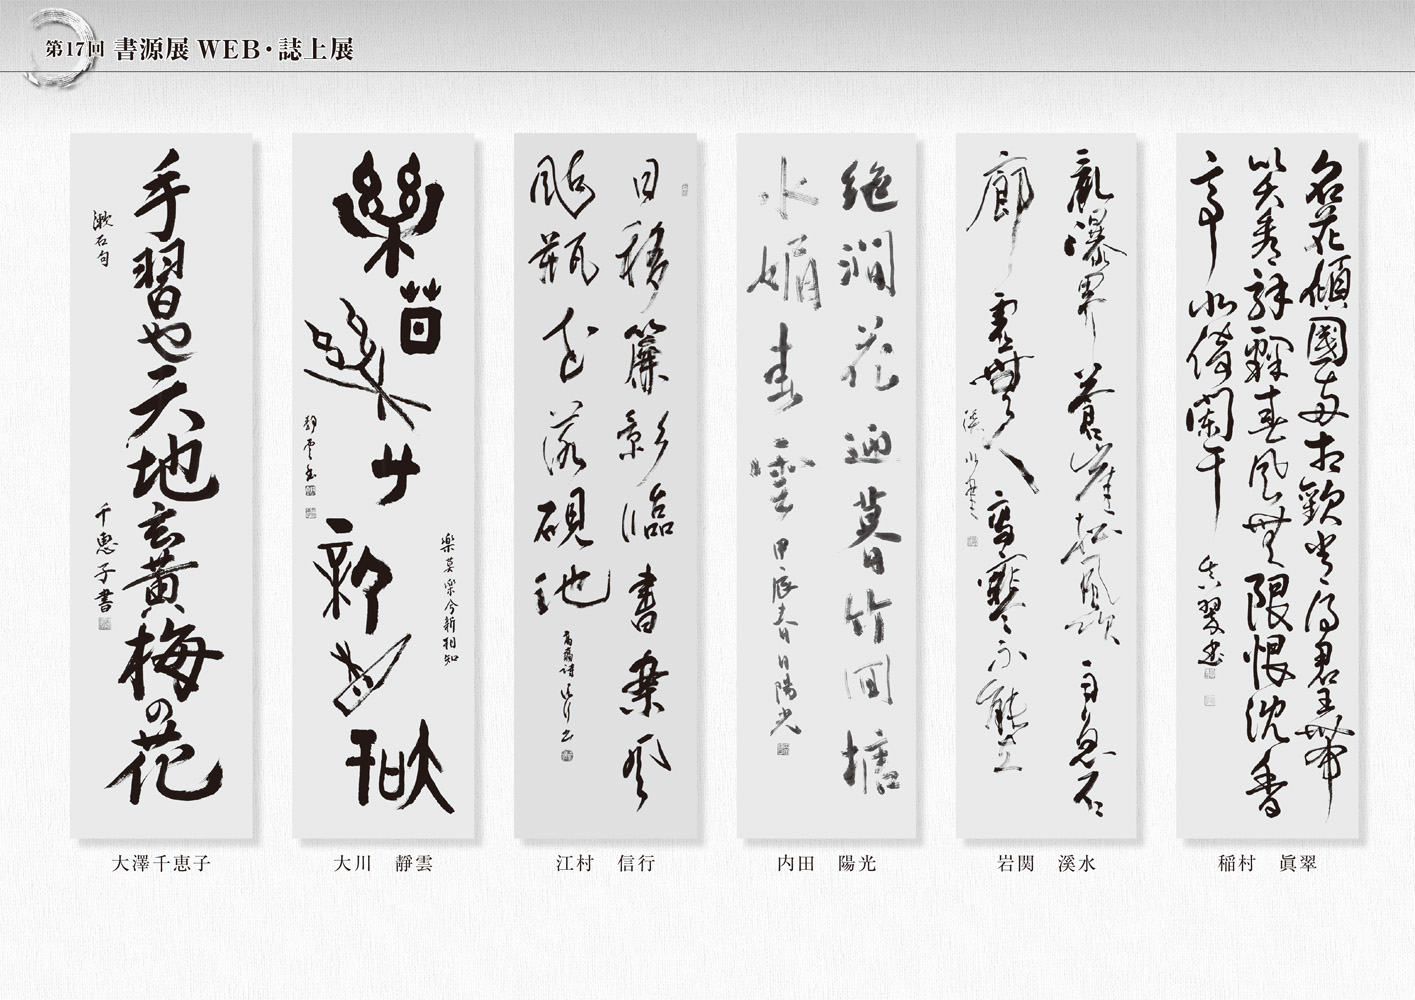 第17回 書源展 WEB・誌上展
名花傾國両相歓常得君王帯
笑看解釋春風無限恨沈香
亭北倚闌干
真翠書
乱瀑界蒼崖松風吹雨急石
廊虚無人高寒不能立
溪水書
絶澗花迎暮竹回塘
水媚春雲
甲辰春日陽光
日移簾影臨書案風
颭瓶花落硯池
高翥詩 信行書
樂莫樂兮新相知
楽莫楽兮新相知
靜雲書
手習也天地玄黄梅の花
漱石句
千恵子書
大澤千恵子
大川　靜雲
江村　信行
内田　陽光
岩関　溪水
稲村　眞翠